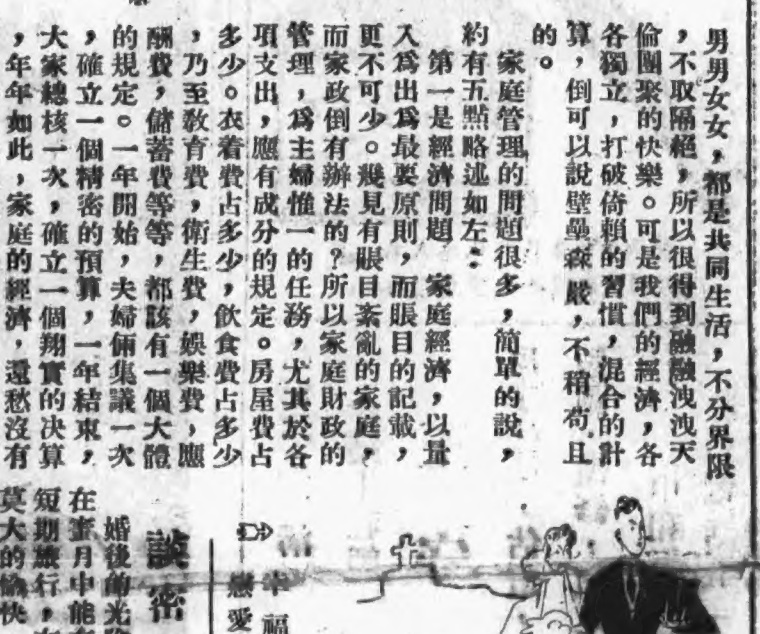 男男女女，都是共同生活，不分界限
，不取隔絕，所以很得到融融洩洩天
倫團聚的快樂。可是我們的經濟，各
各獨立，打破倚賴的習慣，混合的計
算，倒可以說壁壘森嚴，不稍苟且
的。
家庭管理的問題很多，簡單的說，
約有五點略述如左：
第一是經濟問題　家庭經濟，以量
入為出爲最要原則，而賬目的記載，
更不可少。幾見有賬目紊亂的家庭，
而家政倒有辦法的？所以家庭財政的
管理，爲主婦惟一的任務，尤其於各
項支出，應有成分的規定。房屋費占
多少。衣着費占多少，飲食費占多少
，乃至敎育費，衛生費，娛樂費，應
酬費，儲蓄費等等，都該有一個大體
的規定。一年開始，夫婦倆集議一次
，確立一個精密的預算，一年結束，
大家總核一次，確立一個翔實的决算
，年年如此，家庭的經濟，還愁沒有
幸福
戀愛
談密
婚後的光
在蜜月中能
短期旅行，
莫大的愉快